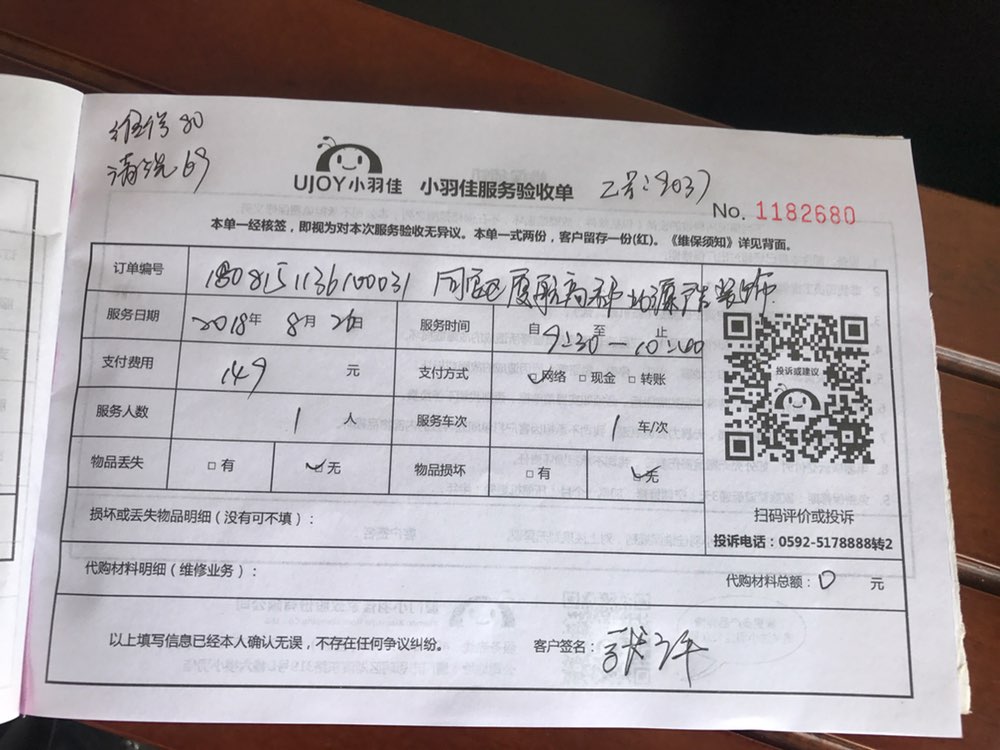 维修80
清洗69
UJOY小羽佳 小羽佳服务验收单
No. 1182680
本单一经核签，即视为对本次服务验收无异议。本单一式两份，客户留存一份(红)。《维保须知》详见背面。
订单编号 1808151136100031 同安区厦航高郡
服务日期 2018年 8月 26日 服务时间 自 9:30 至 — 10:00 止
支付费用 149 元 支付方式 ☑网络 □现金 □转账
投诉或建议
服务人数 1 人 服务车次 1 车/次
物品丢失 □有 ☑无 物品损坏 □有 ☑无
扫码评价或投诉
损坏或丢失物品明细（没有可不填）：
投诉电话：0592-5178888转2
代购材料明细（维修业务）： 代购材料总额：0 元
以上填写信息已经本人确认无误，不存在任何争议纠纷。 客户签名：